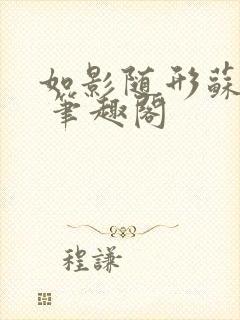 如影随形蘇
笔趣阁
程謙